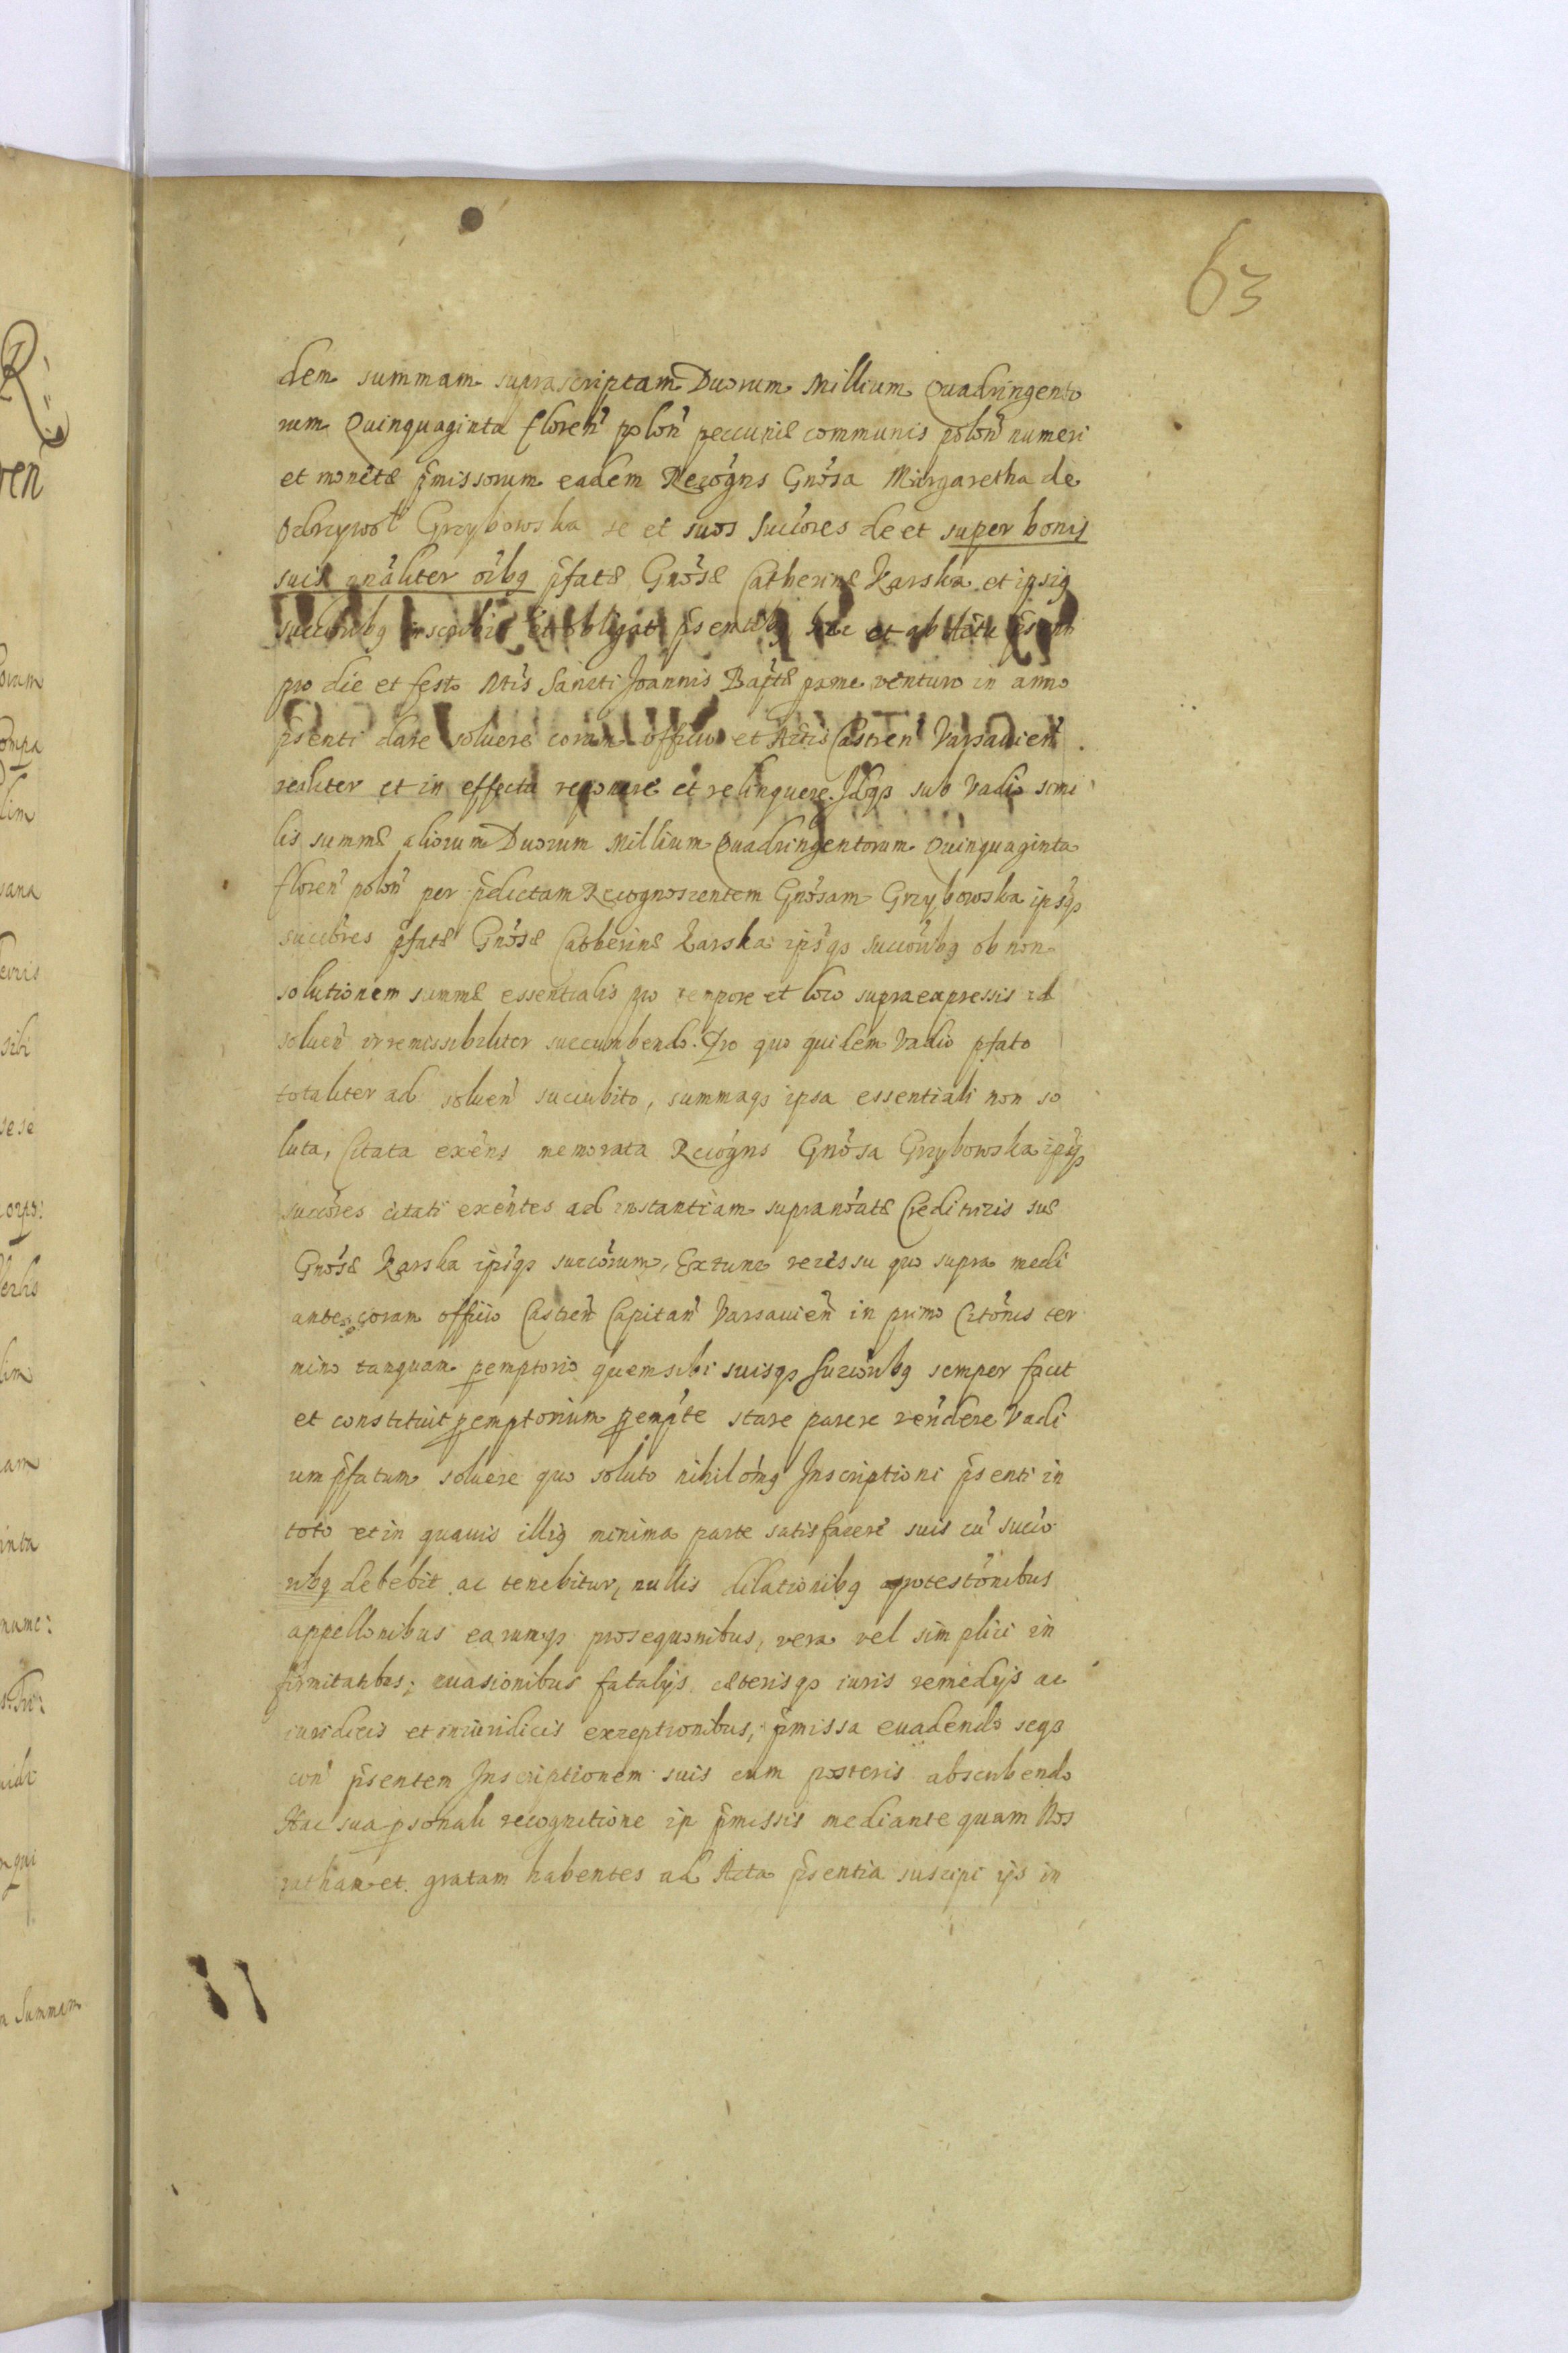 63
dem summam suprascriptam Duorum Millium Quadringento
rum Quinquaginta floren̄ polon̄ peccuniæ communis polon̄ numeri
et monetæ p̄missorum eadem Recogn̄s Gn̄osa Margaretha de
Odrzywoł Grzybowska se et suos Succ̄ores de et super bonis
suis gn̄aliter oībq p̄fatæ Gn̄osæ Catherinæ Karska et ipsiq
succ̄oribq inscribit et obligat p̄sentibq
pro die et festo Ntīs Sancti Joannis Bap̄tæ pxme venturo in anno
p̄senti dare soluere coram officio et Actis Castren̄ Varsauien̄
realiter et in effectu reponere et relinquere. Idqȝ sub Vadio simi
lis summæ aliorum Duorum Millium Quadringentorum Quinquaginta
floren̄ polon̄ per p̄dictam Recognoscentem Gn̄osam Grzybowska ips̄qȝ
succ̄ores p̄fatæ Gn̄osæ Catherinæ Karska ips̄qȝ succ̄oribq ob non
solutionem summæ essentialis pro tempore et loco supraexpressis ad
soluen̄ irremissibiliter succumbendo. Pro quo quidem Vadio p̄fato
totaliter ad soluen̄ succubito, summaqȝ ipsa essentiali non so
luta, Citata exēns memorata Recogn̄s Gn̄osa Grzybowska ips̄qȝ
succ̄ores citati exēntes ad instantiam supranōatæ Creditricis suæ
Gn̄osæ Karska ips̄qȝ succ̄orum, Extunc recessu quo supra medi
ante, coram officio Castren̄ Capitan̄ Varsauien̄ in primo Citōnis ter
mino tanquam pemptorio quem sibi suisqȝ Succ̄oribq semper facit
et constituit pemptorium pemp̄te stare parere rēndere Vadi
um p̄fatum soluere quo soluto nihilōmq Inscriptioni p̄senti in
toto et in quauis illiq minima parte satisfacere suis cū succ̄o
ribq debebit ac tenebitur, nullis dilationibq protestōnibus
appellonibus earumqȝ prosequonibus, vera vel simplici in
firmitatibus; euasionibus fatalijs cæterisqȝ iuris remedijs ac
iuridicis et iniuridicis exceptionibus, p̄missa euadendo seqȝ
con̄ p̄sentem Inscriptionem suis cum posteris absenbendo
Hac sua psonali recognitione in p̄missis mediante quam Nos
ratham et gratam habentes ad Acta p̄sentia suscipi ijs in